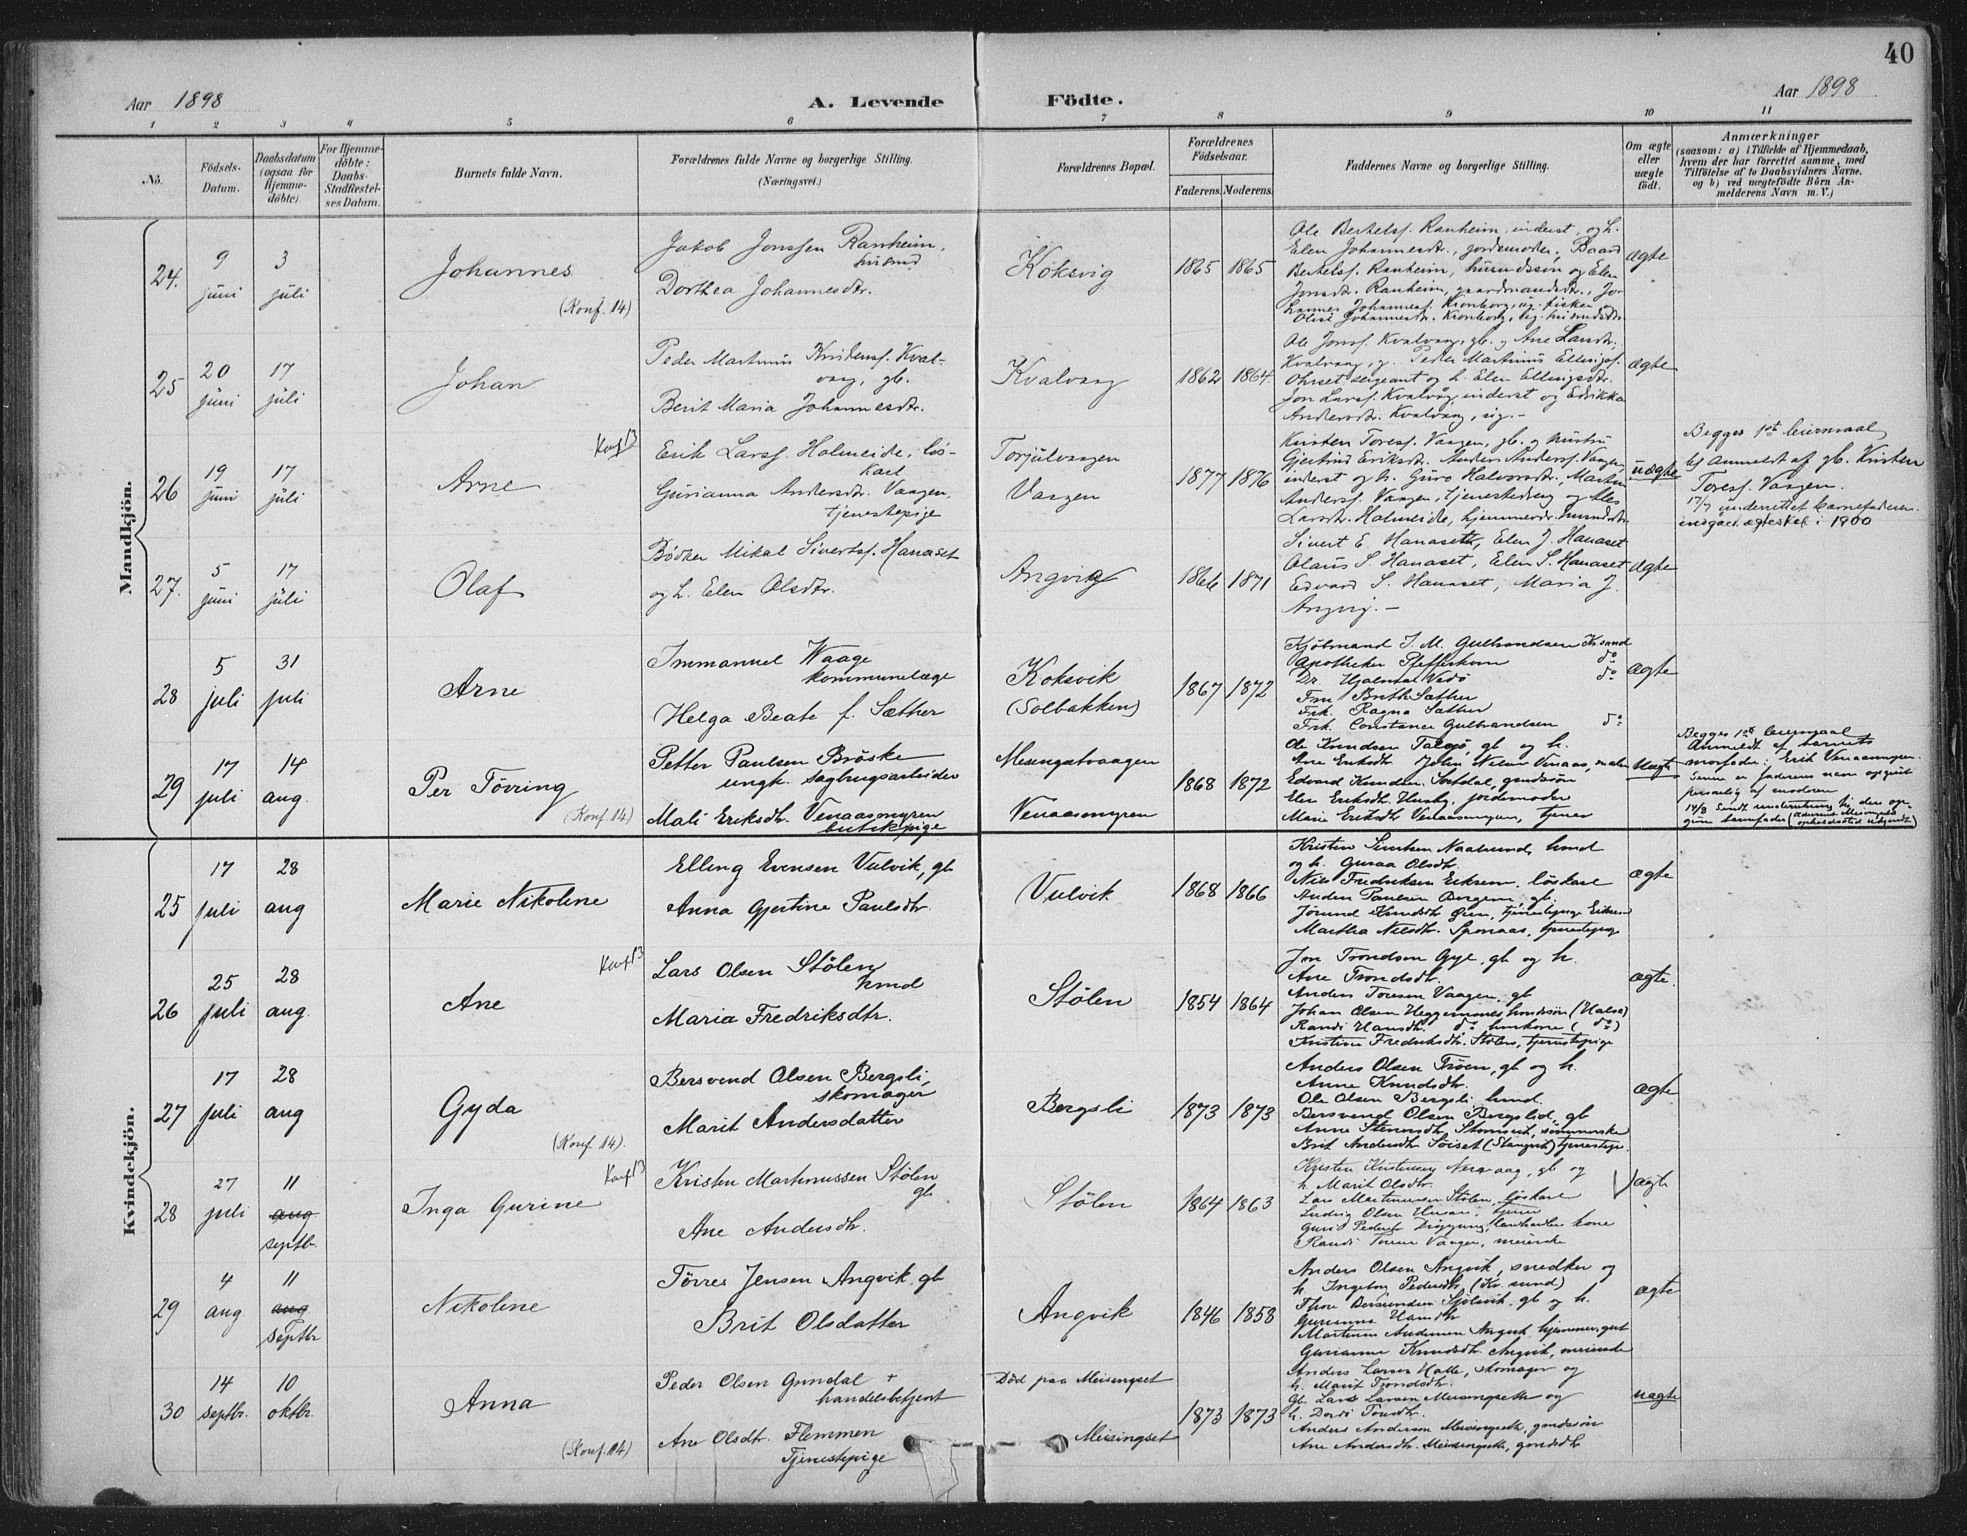 40
Aar 1898
A. Levende Födte.
Aar 1898
1 2 3 4 5 6 7 8 9 10 11
No.
Födsels-Datum.
Daabsdatum (ogsaa for Hjemme-döbte).
For Hjemme-döbte: Daabs-Stadfæstel-ses Datum.
Barnets fulde Navn.
Forældrenes fulde Navne og borgerlige Stilling.
(Næringsvei.)
Forældrenes Bopæl.
Forældrenes Födselsaar.
Faderens. Moderens.
Faddernes Navne og borgerlige Stilling.
Om ægte eller uægte födt.
Anmærkninger
(saasom: a) i Tilfælde af Hjemmedaab,
hvem der har forrettet samme, med
Tilföielse af to Daabsvidners Navne,
og b) ved uægtefödte Börn An-
melderens Navn m. V.)
Mandkjön.
24. 9 juni 3 juli
Johannes
(Konf. 14)
Jakob Jonssen Ranheim,
husmd
Dorthea Johannesdtr.
Koksvig
1865 1865
Ole Bertelsf. Ranheim, inderst, og h.
Elen Johannesdtr., jordemoder, Baard
Bertelsf. Ranheim, husmdssøn og Elen
Jonsdtr. Ranheim, gaardmandsdtr., Jo-
hannes Johannesf. Kronborg, ug. fisker og
Olise Johannesdtr. Kronborg, ug. husmdsdtr.
ægte
25 20 juni 17 juli
Johan
Peder Martinus Kristensf. Kval-
vaag, gb.
Berit Maria Johannesdtr.
Kvalvaag
1862 1864
Ole Jonsf. Kvalvaag, gb. og Ane Larsdtr.
Kvalvaag, g. Peder Martinus Ellingsf.
sergeant og h. Elen Ellingsdtr.
Jon Larsf. Kvalvåg, inderst og
Andersdtr. Kvalvaag, ug. -
ægte
26 19 juni 17 juli
Arne
Konf 13
Erik Larsf. Holmeide, løs-
karl
Gurianna Andersdtr. Vaagen,
tjenestepige
Torjulvaagen
Vaagen
1877 1876
Kristen Toresf. Vaagen, gb. og hustru
Gjertrud Eriksdtr. Anders Andersf. Vaagen,
inderst og h. Guro Halvorsdtr., Martin
Andersf. Vaagen, tjenestedreng og Ales
Larsdtr. Holmeide, hjemmevær. husmdsdtr.
uægte
Begges 1st leiermaal
Anmeldt af gb. Kristen
Toresf. Vaagen.
17/7 underrettet barnefaderen.
indgået ægteskab i 1900
27. 5 juni 17 juli
Olaf
Bødker Mikal Sivertsf. Hanaset
og h. Elen Olsdtr.
Angvig
1866 1871
Sivert E. Hanaseth, Elen J. Hanaset
Olaus S. Hanaset, Elen S. Hanaset
Edvard S. Hanaset, Maria J.
Angvig. -
ægte
28 5 juli 31 juli
Arne
Immanuel Waage
kommunelæge
Helga Beate f. Sæther
Koksvik
(Solbakken)
1867 1872
Kjøbmand J. M. Gulbrandsen Krsund
Apotheker Pfefferkorn do
Dr. Hjalmar do
Fru Brith Sæther
Frk. Ragna Sæther
Frk. Constance Gulbrandsen do
ægte
29 17 juli 14 aug.
Per Tørring
(Konf. 14)
Petter Paulsen Brøske
ungk. sagbrugsarbeider
Mali Eriksdtr. Venaasmyren
butikpige
Meisingsetvaagen
Venaasmyren
1868 1872
Ole Knudsen Talgø, gb og h.
Ane Eriksdtr. John Nilsen Venaas, maler
Edvard Knudsen Sørdal, gaardsøn
Elen Eriksdtr Husby, jordemoder
Marie Eriksdtr Venaasmyren, tjener
Uægte
Begges 1st leiermaal
Anmeldt af barnets
morfader: Erik Venaasmyren.
Senere er faderens navn opgivet
personlig af moderen
14/8 Sendt underretning til den op-
givne barnefader
Kvindekjön.
25 17 juli 28 aug
Marie Nikoline
Elling Evensen Vulvik, gb
Anna Gjertine Paulsdtr.
Vulvik
1868 1866
Kristen Sivertsen Naalsund, hmd
og h. Guraa Olsdtr.
Nils Fredriksen Eikrem, løskarl
Anders Paulsen Bergem, gb.
Jørund Knudsdtr Øien, tjenestepige Eikrem
Martha Nilsdtr. Sponaas, tjenestepige
ægte
26 25 juli 28 aug.
Ane
Konf 13
Lars Olsen Stølen
hmd
Maria Fredriksdtr.
Stølen
1854 1864
Jon Trondsen Gyl, gb og h.
Ane Trondsdtr.
Anders Toresen Vaagen, gb
Johan Olsen Heggemsnes hmdssøn (Halse)
Randi Hansdtr. do hmkone (do)
Kristine Fredriksdtr. Stølen, tjenestepige
ægte.
27 17 juli 28 aug
Gyda
(Konf. 14).
Bersvend Olsen Bergsli,
skomager
Marit Andersdatter
Bergsli
1873 1873
Anders Olsen Trøen, gb og h.
Anne Knudsdtr.
Ole Olsen Bergsli hmd.
Bersvend Olsen Bergslid, gb
Brit Andersdtr Søiset (Stangvik) tjenestepi.
ægte
28 27 juli 11 aug. septbr.
Inga Gurine
Konf 13
Kristen Martinussen Stølen
gb
Ane Andersdtr.
Stølen
1864 1863
Kristen Kristensen gb og
h. Marit Olsdtr.
Lars Martinussen Stølen, løskarl
Ludvig Olsen tjener
Randi Toresen Vaagen, meierske
ægte
29 4 aug. 11 aug septbr
Nikoline
Tørres Jensen Angvik, gb
Brit Olsdatter
Angvik
1846 1858
Anders Olsen Angvik, snedker og
h. Ingeborg Pedersdtr. (Kr.sund)
Thore Bersvendsen Sjølsvik, gb og h.
Gurianna Hansdtr
Martinus Andersen Angvik hjemmev. gut
Gurianna Knudsdtr. Angvik, meierske
ægte
30 14 septbr. 10 oktbr.
Anna
(Konf. 14)
Peder Olsen Gundal +
handelsbetjent
Ane Olsdtr. Flemmen
Tjenestepige
Död paa Meisingset
Meisingset
1873 1873
Anders Larsen Halle, skomager og
h. Marit Trondsdtr.
Gb Lars Larsen Meisingseth og
h. Dordi Toresdtr.
Anders Andersen Meisingseth, gaardssøn
Ane Andersdtr. Meisingseth, gaardsdtr
uægte